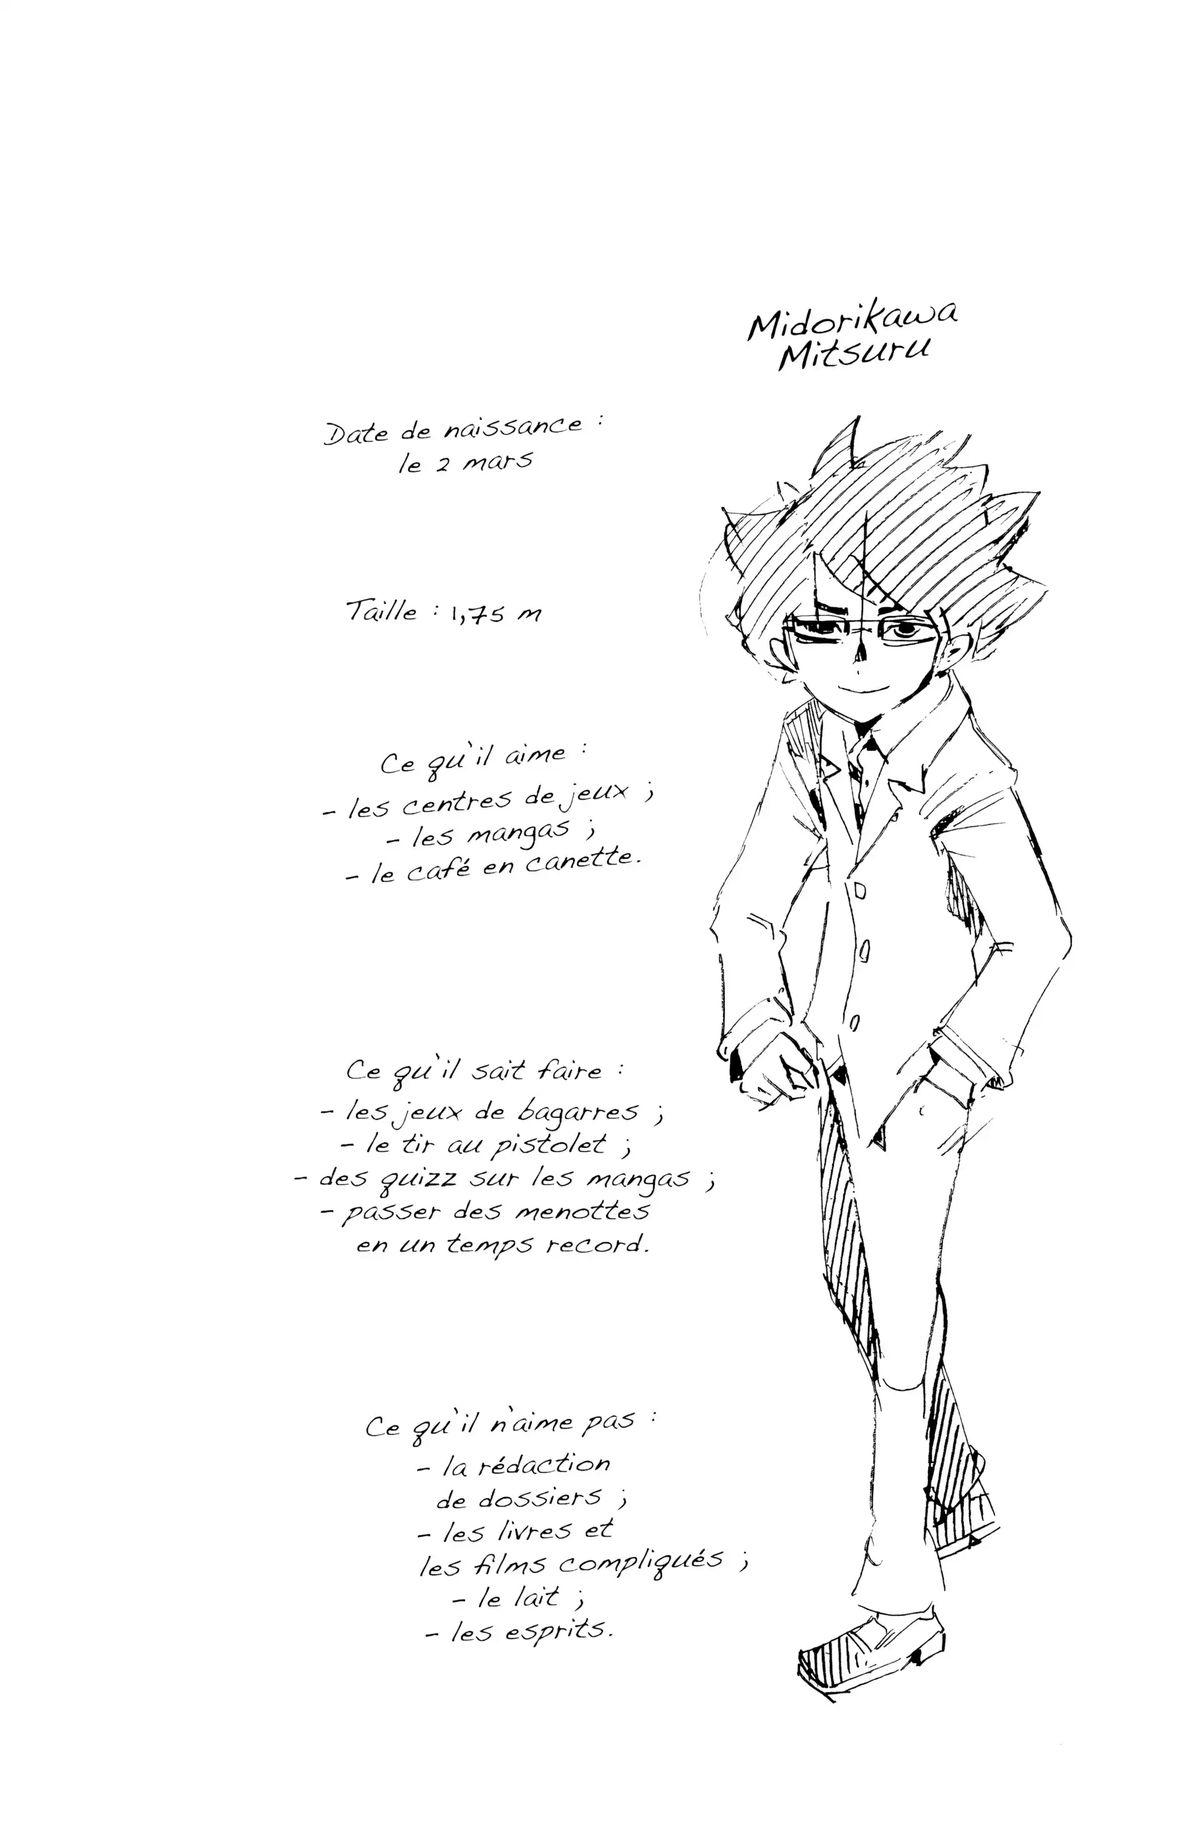 Midorikawa
Mitsuru
Date de naissance :
le 2 mars
Taille : 1,75 m
Ce qu'il aime :
- les centres de jeux ;
- les mangas ;
- le café en canette.
Ce qu'il sait faire :
- les jeux de bagarres ;
- le tir au pistolet ;
- des quizz sur les mangas ;
- passer des menottes
en un temps record.
Ce qu'il n'aime pas :
- la rédaction
de dossiers ;
- les livres et
les films compliqués ;
- le lait ;
- les esprits.